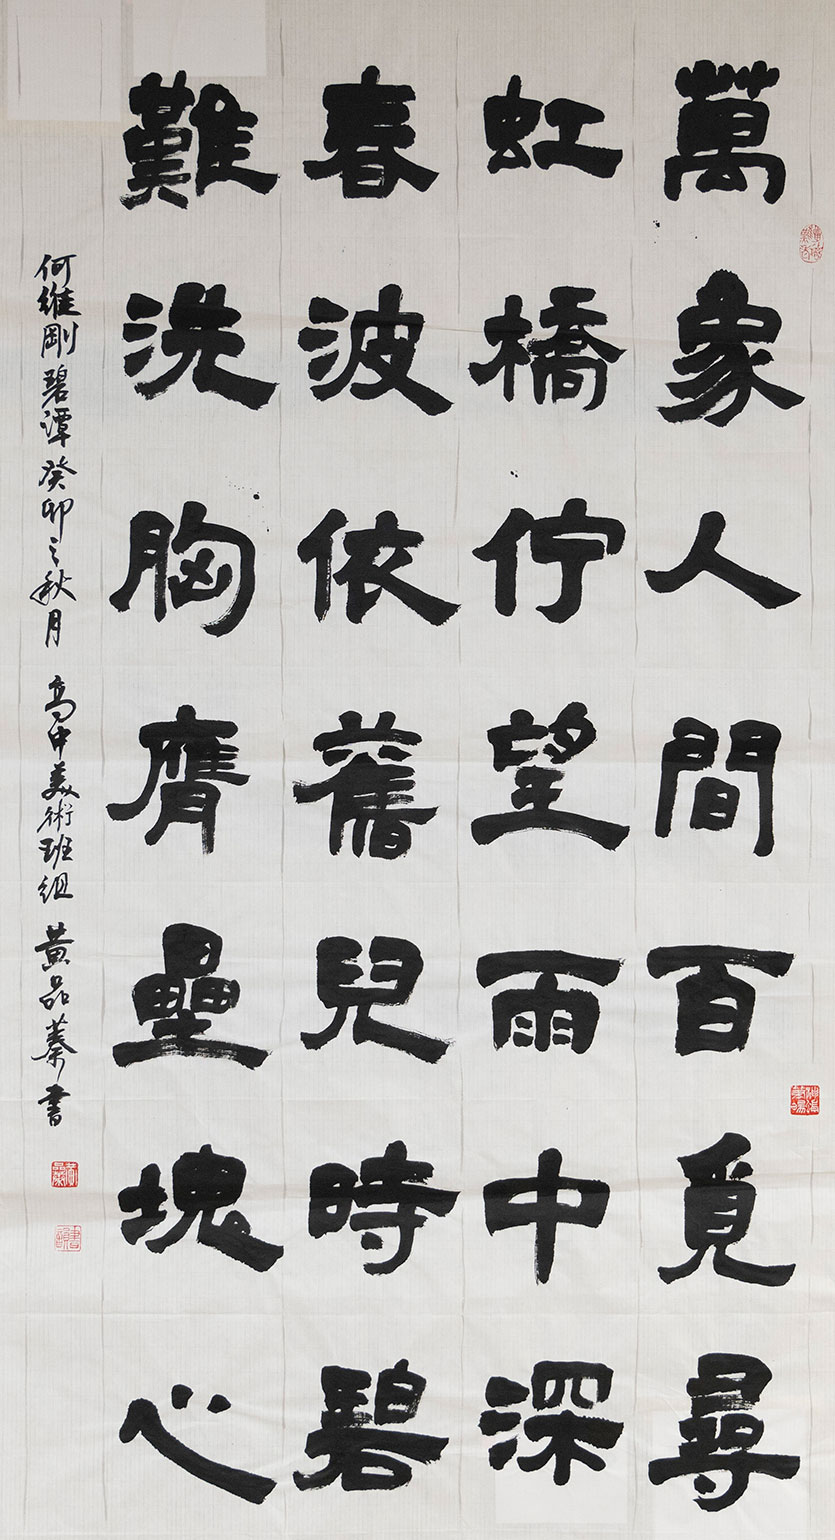 萬象人間百覓尋
虹橋佇望雨中深
春波依舊兒時碧
難洗胸膺壘塊心
何維剛碧潭癸卯之秋月 高中美術班組 黃品蓁書